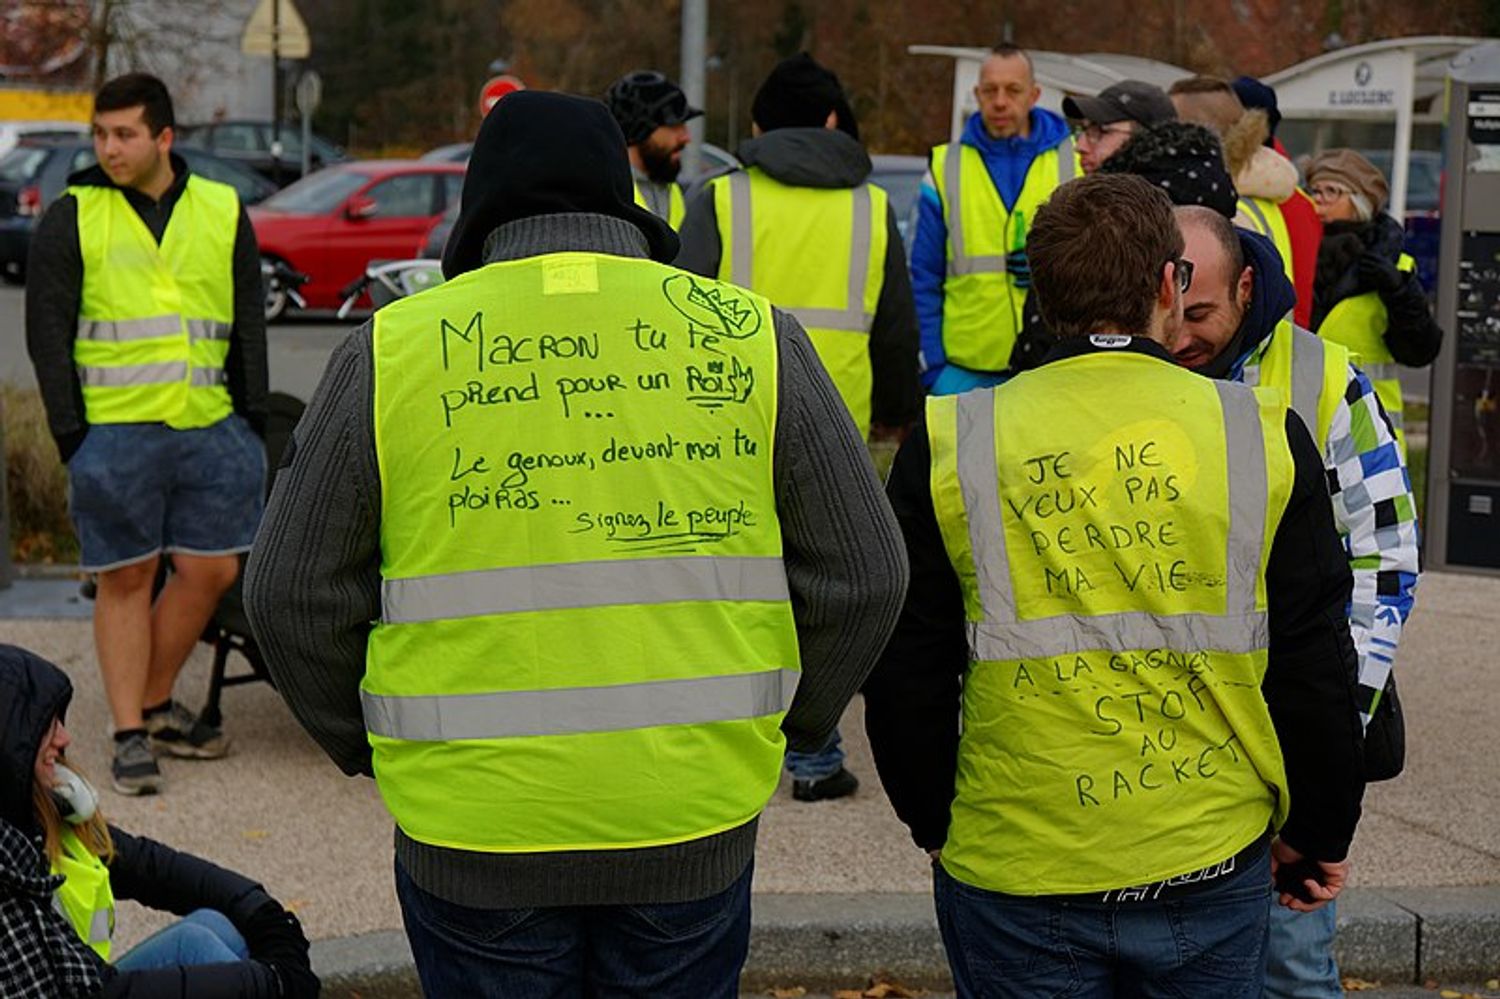 Macron tu te
prend pour un Rois
...
Le genoux, devant moi tu
ploiras ...
signez le peuple
JE NE
VEUX PAS
PERDRE
MA VIE
A LA GAGNER
STOP
AU
RACKET
E.LECLERC